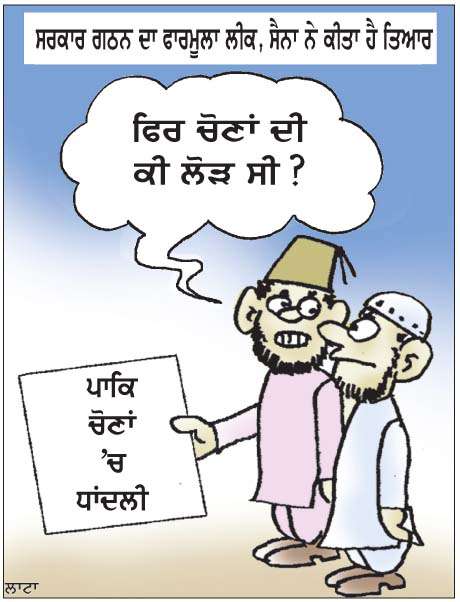 ਸਰਕਾਰ ਗਠਨ ਦਾ ਫਾਰਮੂਲਾ ਲੀਕ, ਸੈਨਾ ਨੇ ਕੀਤਾ ਹੈ ਤਿਆਰ
ਫਿਰ ਚੋਣਾਂ ਦੀ
ਕੀ ਲੋੜ ਸੀ ?
ਪਾਕਿ
ਚੋਣਾਂ
'ਚ
ਧਾਂਦਲੀ
ਲਾਟਾ